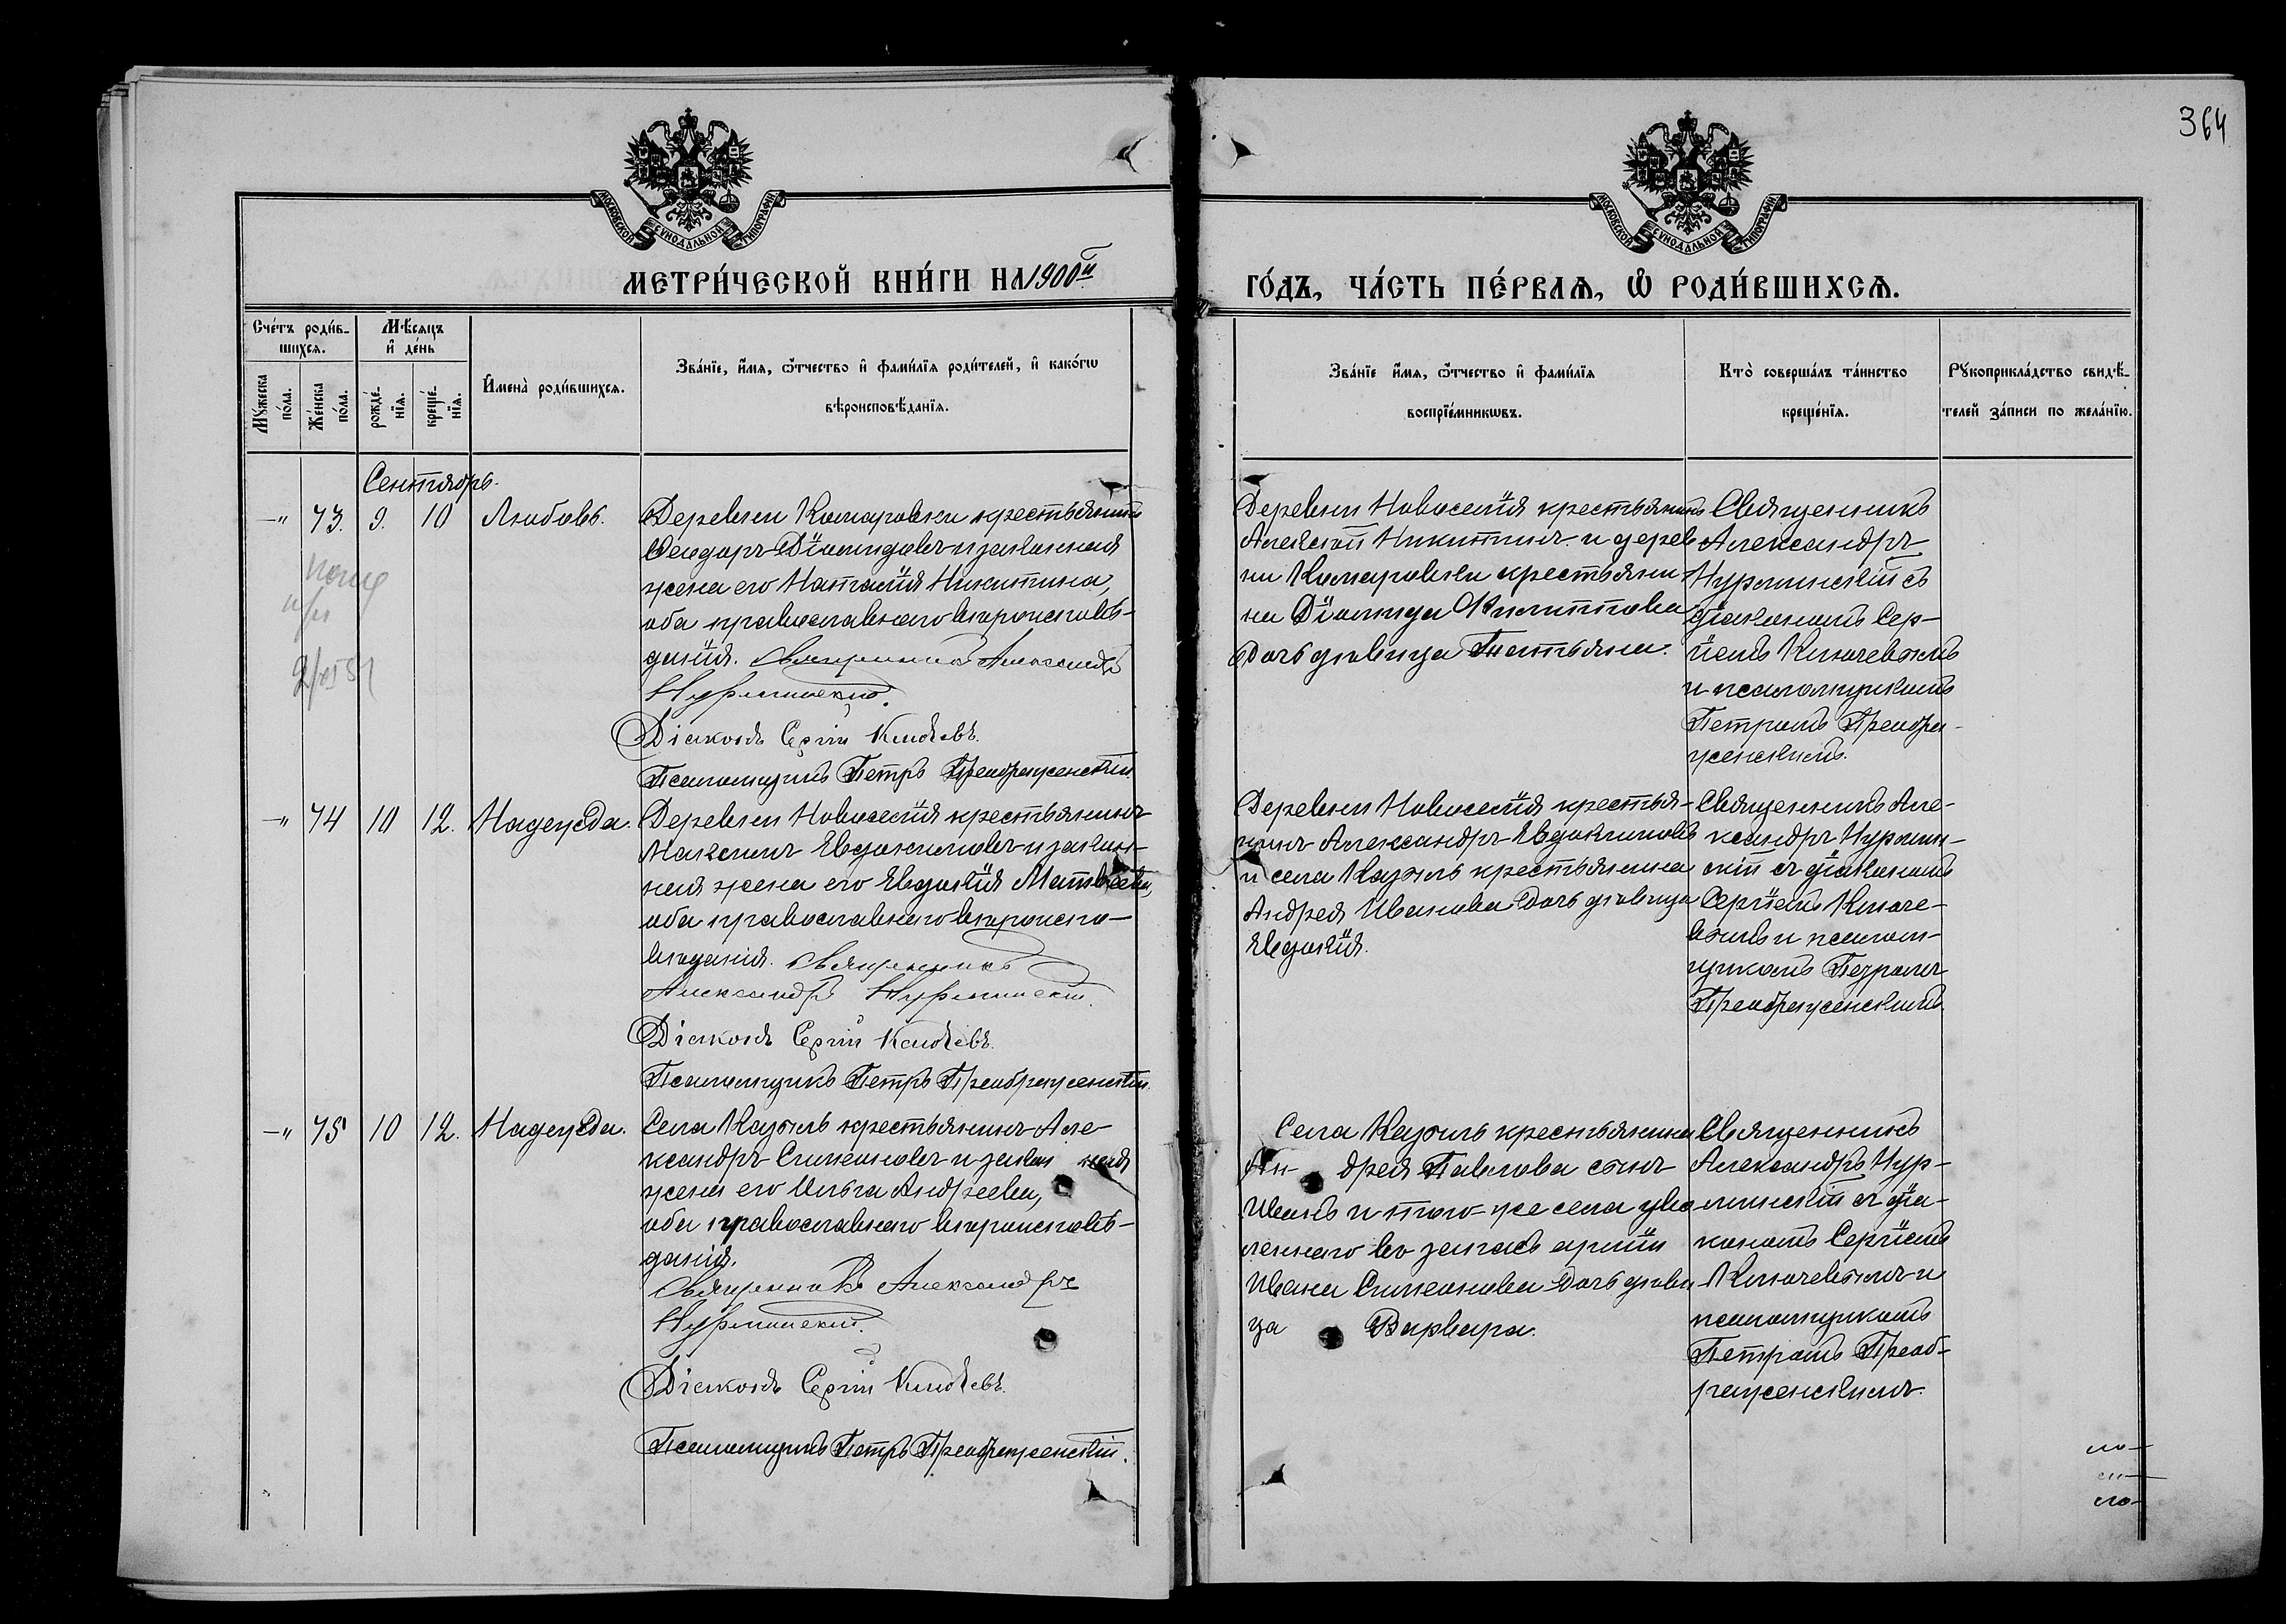 364
МОСКОВСКОЙ СѴНОДАЛЬНОЙ ТИПОГРАФІИ
МОСКОВСКОЙ СѴНОДАЛЬНОЙ ТИПОГРАФІИ
МЕТРИ́ЧЕСКОЙ КНИ́ГИ НА 1900й
ГО́ДЪ, ЧА́СТЬ ПЕ́РВАѦ, Ѡ РОДИ́ВШИХСѦ.
Сче́тъ роди́в-
шихсѧ.
Мѣ́сѧцъ
и҆ де́нь
Мꙋ́жеска
по́ла.
Же́нска
по́ла.
рожде́-
нїѧ.
креще́-
нїѧ.
И҆мена̀ роди́вшихсѧ.
Зва́нїе, и҆́мѧ, ѻ҆́тчество и҆ фами́лїѧ роди́телей, и҆ како́гѡ
вѣроисповѣ́данїѧ.
Зва́нїе и҆́мѧ, ѻ҆́тчество и҆ фами́лїѧ
воспрїе́мникѡвъ.
Кто̀ соверша́лъ та́инство
креще́нїѧ.
Рꙋкоприкла́дство свидѣ́-
телей за́писи по жела́нїю.
Сентябрь.
—„ 73. 9. 10 Любовь.
Деревни Комаровки крестьянинъ
Ѳеодоръ Діомидовъ и законная
жена его Наталія Никитина,
оба православнаго вѣроисповѣ-
данія. Священникъ Александръ
Нурминскій.
Діаконъ Сергій Ключевъ.
Псаломщикъ Петръ Преображенскій
Деревни Новоселія крестьянинъ
Алексѣй Никитинъ и дерев
ни Комаровки крестьяни-
на Діомида Филиппова
дочь дѣвица Татьяна.
Священникъ
Александръ
Нурминскій съ
діакономъ Сер-
гіемъ Ключевымъ
и псаломщикомъ
Петромъ Преобра-
женскимъ.
2/XI 51
—„ 74 10 12. Надежда.
Деревни Новоселія крестьянинъ
Максимъ Евдокимовъ и закон-
ная жена его Евдокія Матвѣева,
оба православнаго вѣроиспо-
вѣданія. Священникъ
Александръ Нурминскій.
Діаконъ Сергій Ключевъ.
Псаломщикъ Петръ Преображенскій.
Деревни Новоселія крестья-
нинъ Александръ Евдокимовъ
и села крестьянина
Андрея Иванова дочь дѣвица
Евдокія.
Священникъ Але-
ксандръ Нурмин-
скій съ діакономъ
Сергіемъ Ключе-
вымъ и псалом-
щикомъ Петромъ
Преображенскимъ.
—„ 75 10 12. Надежда.
Села крестьянинъ Але-
ксандръ Симеоновъ и закон ная
жена его Ольга Андреева,
оба православнаго вѣроисповѣ-
данія.
Священникъ Александръ
Нурминскій.
Діаконъ Сергій Ключевъ.
Псаломщикъ Петръ Преображенскій.
Села крестьянина
Ан- дрея Павлова сынъ
Иванъ и того-же села уво
леннаго въ запасъ арміи
Ивана Симеонова дочь дѣви
ца Варвара.
Священникъ
Александръ Нур-
минскій съ діа-
кономъ Сергіемъ
Ключевымъ и
псаломщикомъ
Петромъ Преоб-
раженскимъ.